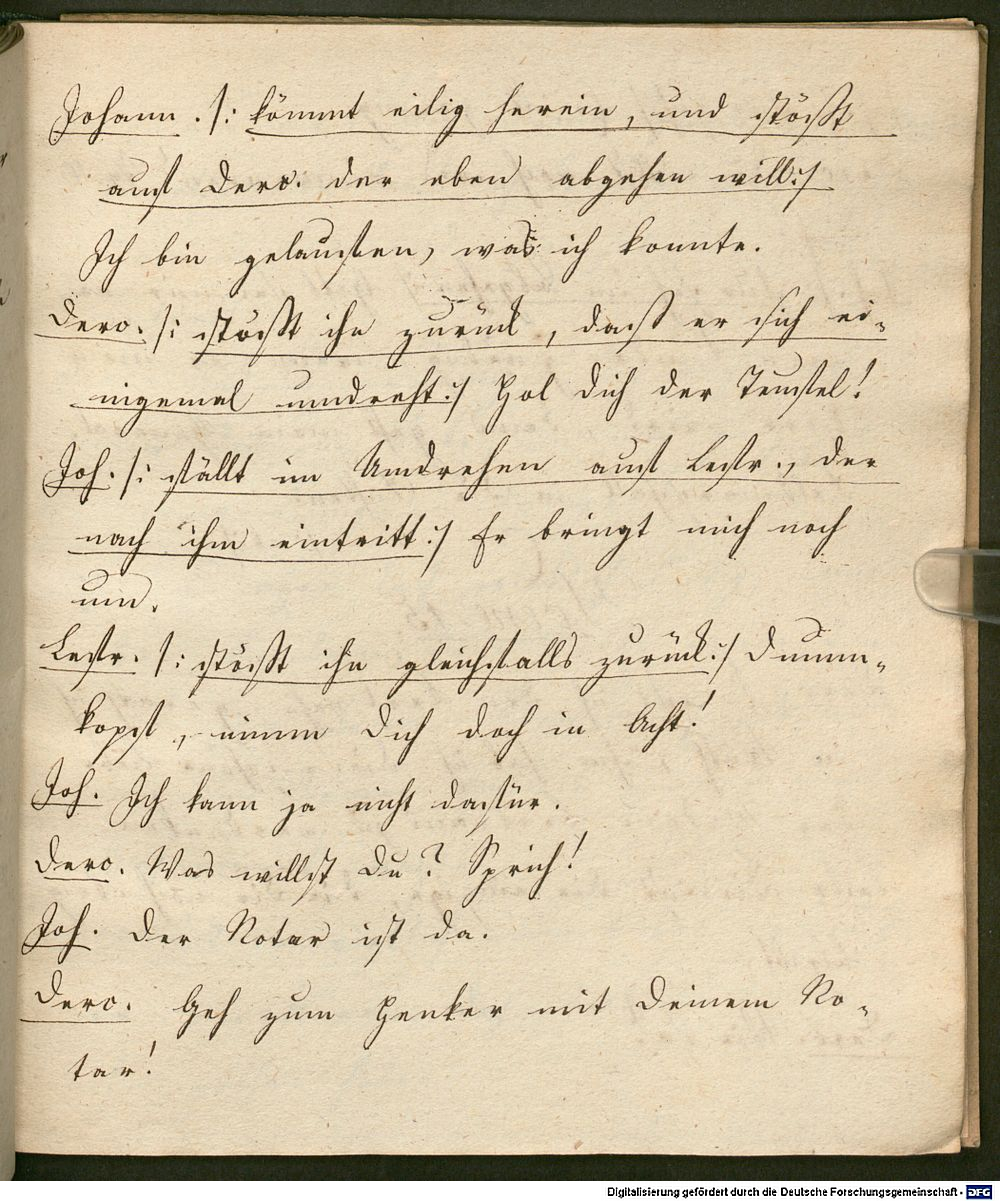 Johann. /: kömmt eilig herein, und stößt
auf Dero. der eben abgehen will:/
Ich bin gelaufen, was ich konnte.
Dero. /: stößt ihn zurück, daß er sich ei-
nigemal umdreht:/ Hol dich der Teufel!
Joh. /: fällt im Umdrehen auf Lefr., der
nach ihm eintritt:/ Er bringt mich noch
um.
Lefr. /: stößt ihn gleichfalls zurück:/ Dumm-
kopf, nimm dich doch in Acht!
Joh. Ich kann ja nicht dafür.
Dero. Was willst du? Sprich!
Joh. Der Notar ist da.
Dero. Geh zum Henker mit deinem No-
tar!
Digitalisierung gefördert durch die Deutsche Forschungsgemeinschaft - DFG